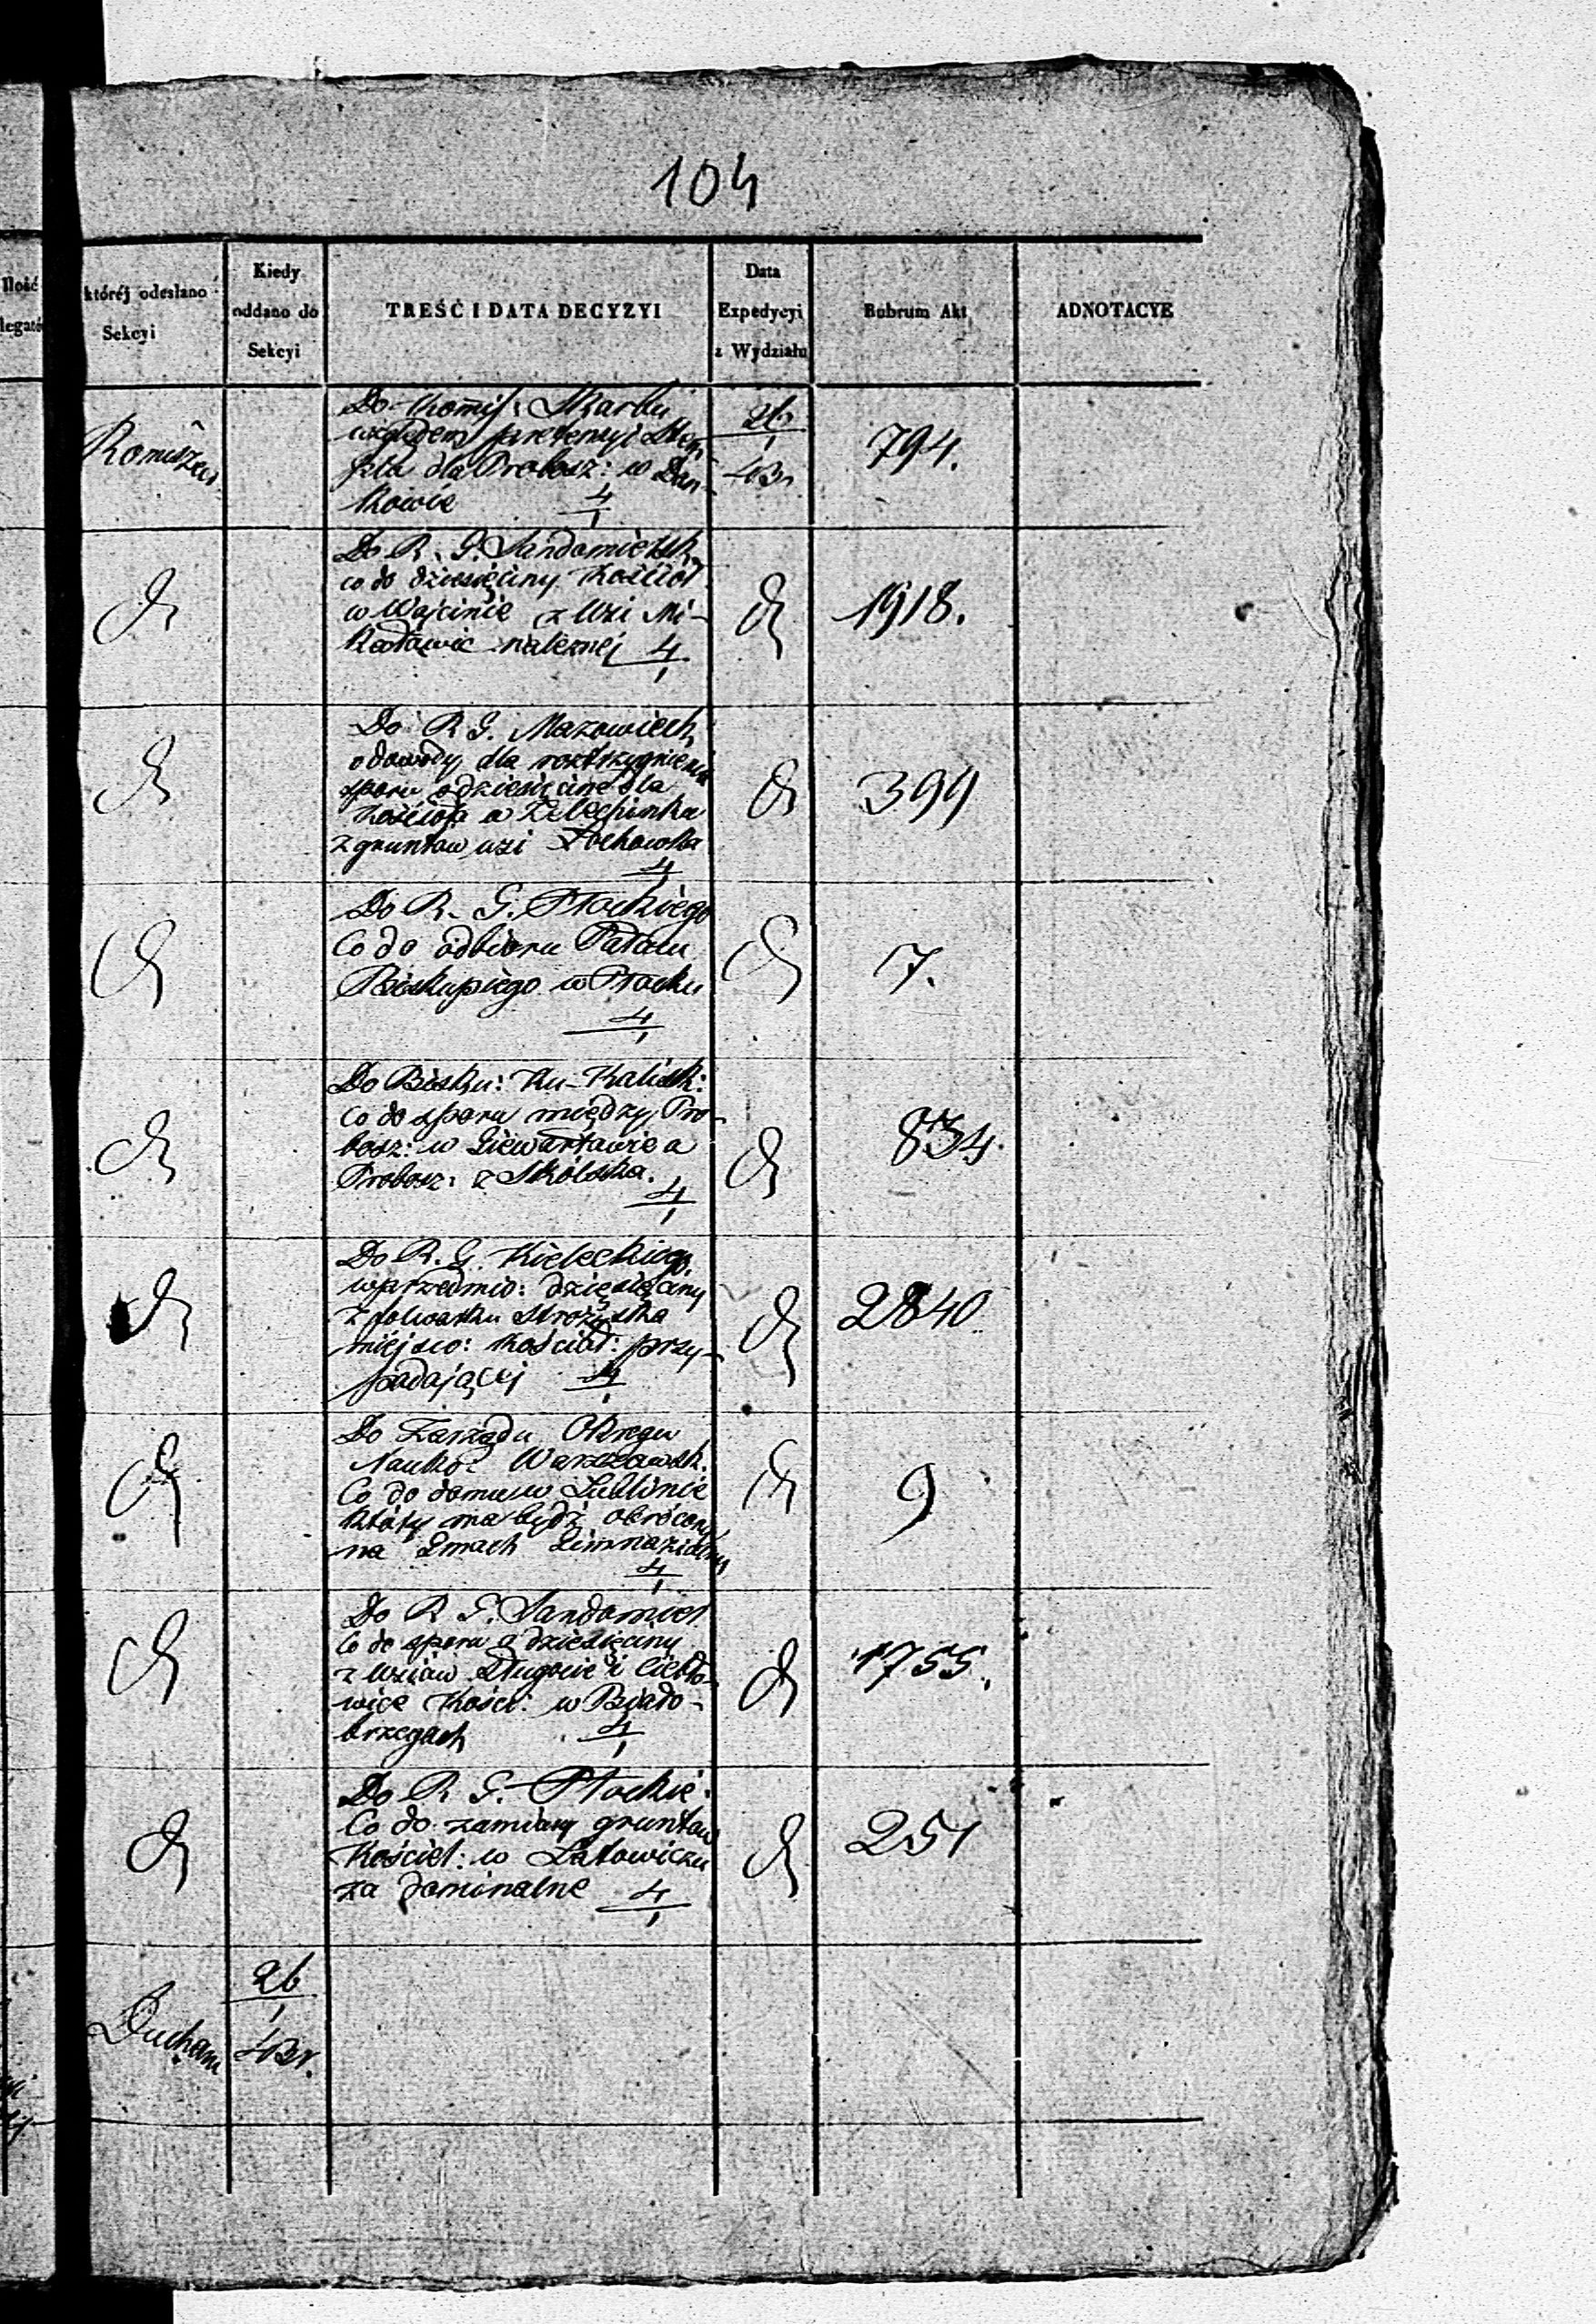 104
Ilość
któréj odesłano
Sekcyi
Kiedy
oddano do
Sekcyi
TREŚĆ I DATA DECYZYI
Data
Expedycyi
z Wydziału
Rubrum Akt
ADNOTACYE
Do Kommis: Skarbu
względem pretensyi
dla Probosz: w Dan-
kowie 4/1
26/1
43
794.
Do R. G. Sandomiersk
co do dziesięciny Kościół
w Wójcinie z Wsi Mi-
należnej 4/1
1918.
Do R G. Mazowieck
o dowody dla rozstrzygnienia
sporu o dziesięcinę dla
Kościoła w Żelechlinka
z gruntów wsi
4/1
399
Do R. G. Płockiego
Co do odbioru Pałacu
Biskupiego w Płocku
4/1
7.
Do Bisku: Ku-Kalisk:
Co do sporu między Pro-
bosz: w Giewartowie a
Probosz: z Skólska.
4/1
834.
Do R. G. Kieleckiego
w przedmio: dziesięciny
z folwarku Strożyska
miejsco: Kościoł: przy-
padającej 4/1
2840
Do Zarządu Okręgu
Nauko: Warszawsk.
Co do domu w Lublinie
który ma bydź obrócony
na Gmach Gimnazialny
4/1
9
Do R G. Sandomier
Co do sporu o dziesięciny
z Wsiów Długowie i
wice Kościł: w Biało-
brzegach 4/1
1755.
Do R G. Płockie
Co do zamiany gruntów
Kościel: w Latowiczu
za dominalne 4/1
251
26/1
43 r.
Ducham